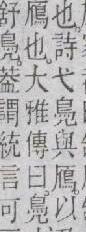 也。詩弋鳧與鴈。以
鴈也。大雅傳曰。鳧
舒鳧。葢謂統言可